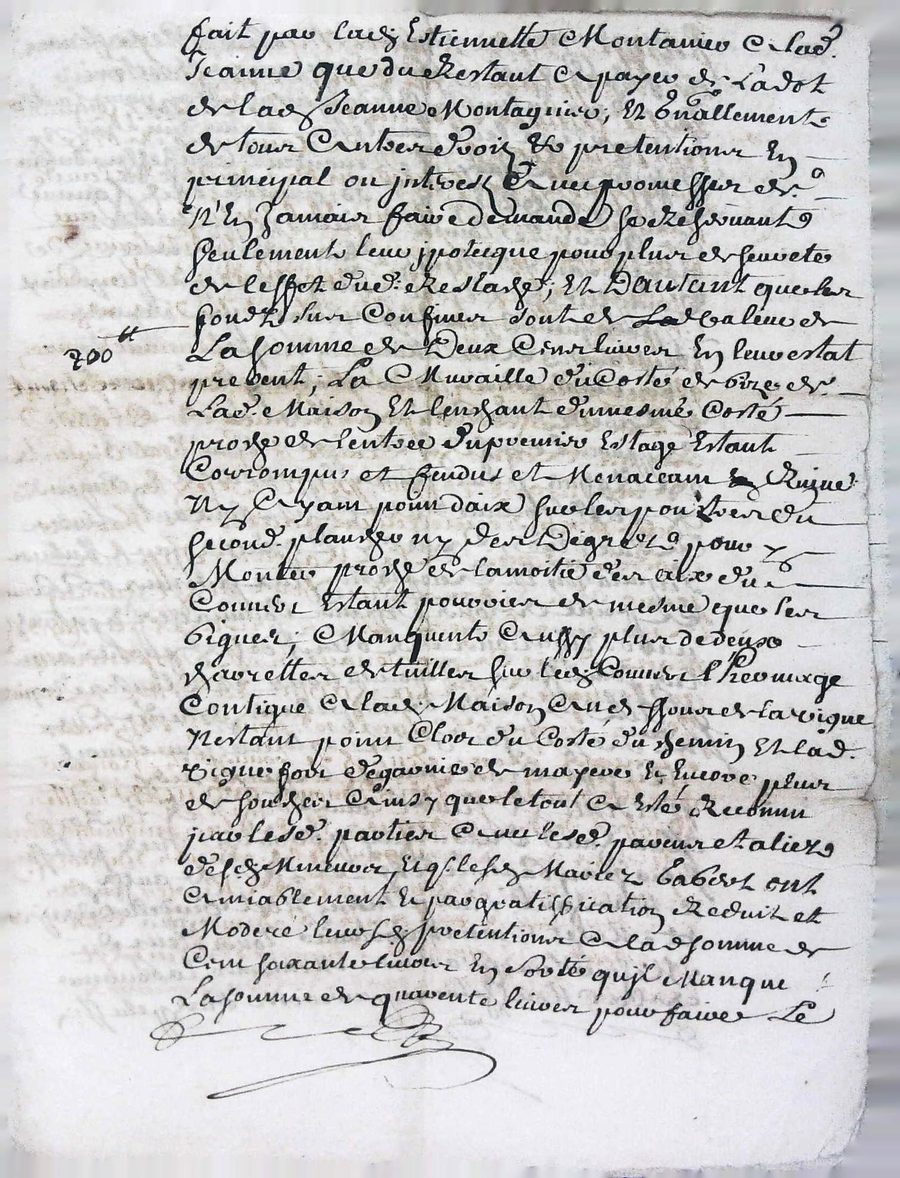 fait par lad. Estiennette Montanier a lad.
Jeanne que du Restant a payer de Ladot
de lad. Jeanne Montagnier, Et G'nallement
de tous autres droitz & pretentions En
principal ou jnterestz avec promesses de
N'En Jamais faire demande se Reservants
seulement leur jpotecque pour plus de seureté
de leffet dud. Restads; Et Dautant que les
fondz sus Confines sont de La valeur de
200tt
La somme de Deux Cens livres En leur estat
present, La Muraille du Costé de bize de
Lad. Maison Et lenchant du mesme Costé
proche de lentree du premier Estage Estant
Corrompus et fendus et Menaceant Ruine
Ny Ayant point daix sur les poutres du
second plancher ny des Degrets pour
Monter proche de la moitié des aix du
Couvert Estant pourries de mesme que les
Vignes; Manquents aussy plus de deux
charettes de tuilles sur led. Couvert l'hermitage
Contigue a lad. Maison au dessous de la vigne
Nestant point Clos du Costé du chemin Et lad.
vigne fort degarnie de mayere Et Encore plus
de souches Ainsy que le tout a Esté Reconnu
par lesd. parties avec lesd. parens et aliez
desd. Mineurs, Et q. lesd. Mariez Babert ont
amiablement Et par gratiffication Reduit et
Moderé leurs d. pretentions a lad. somme de
Cent soixante livres En sorte qu'jl Manque
La somme de quarente livres pour faire Le